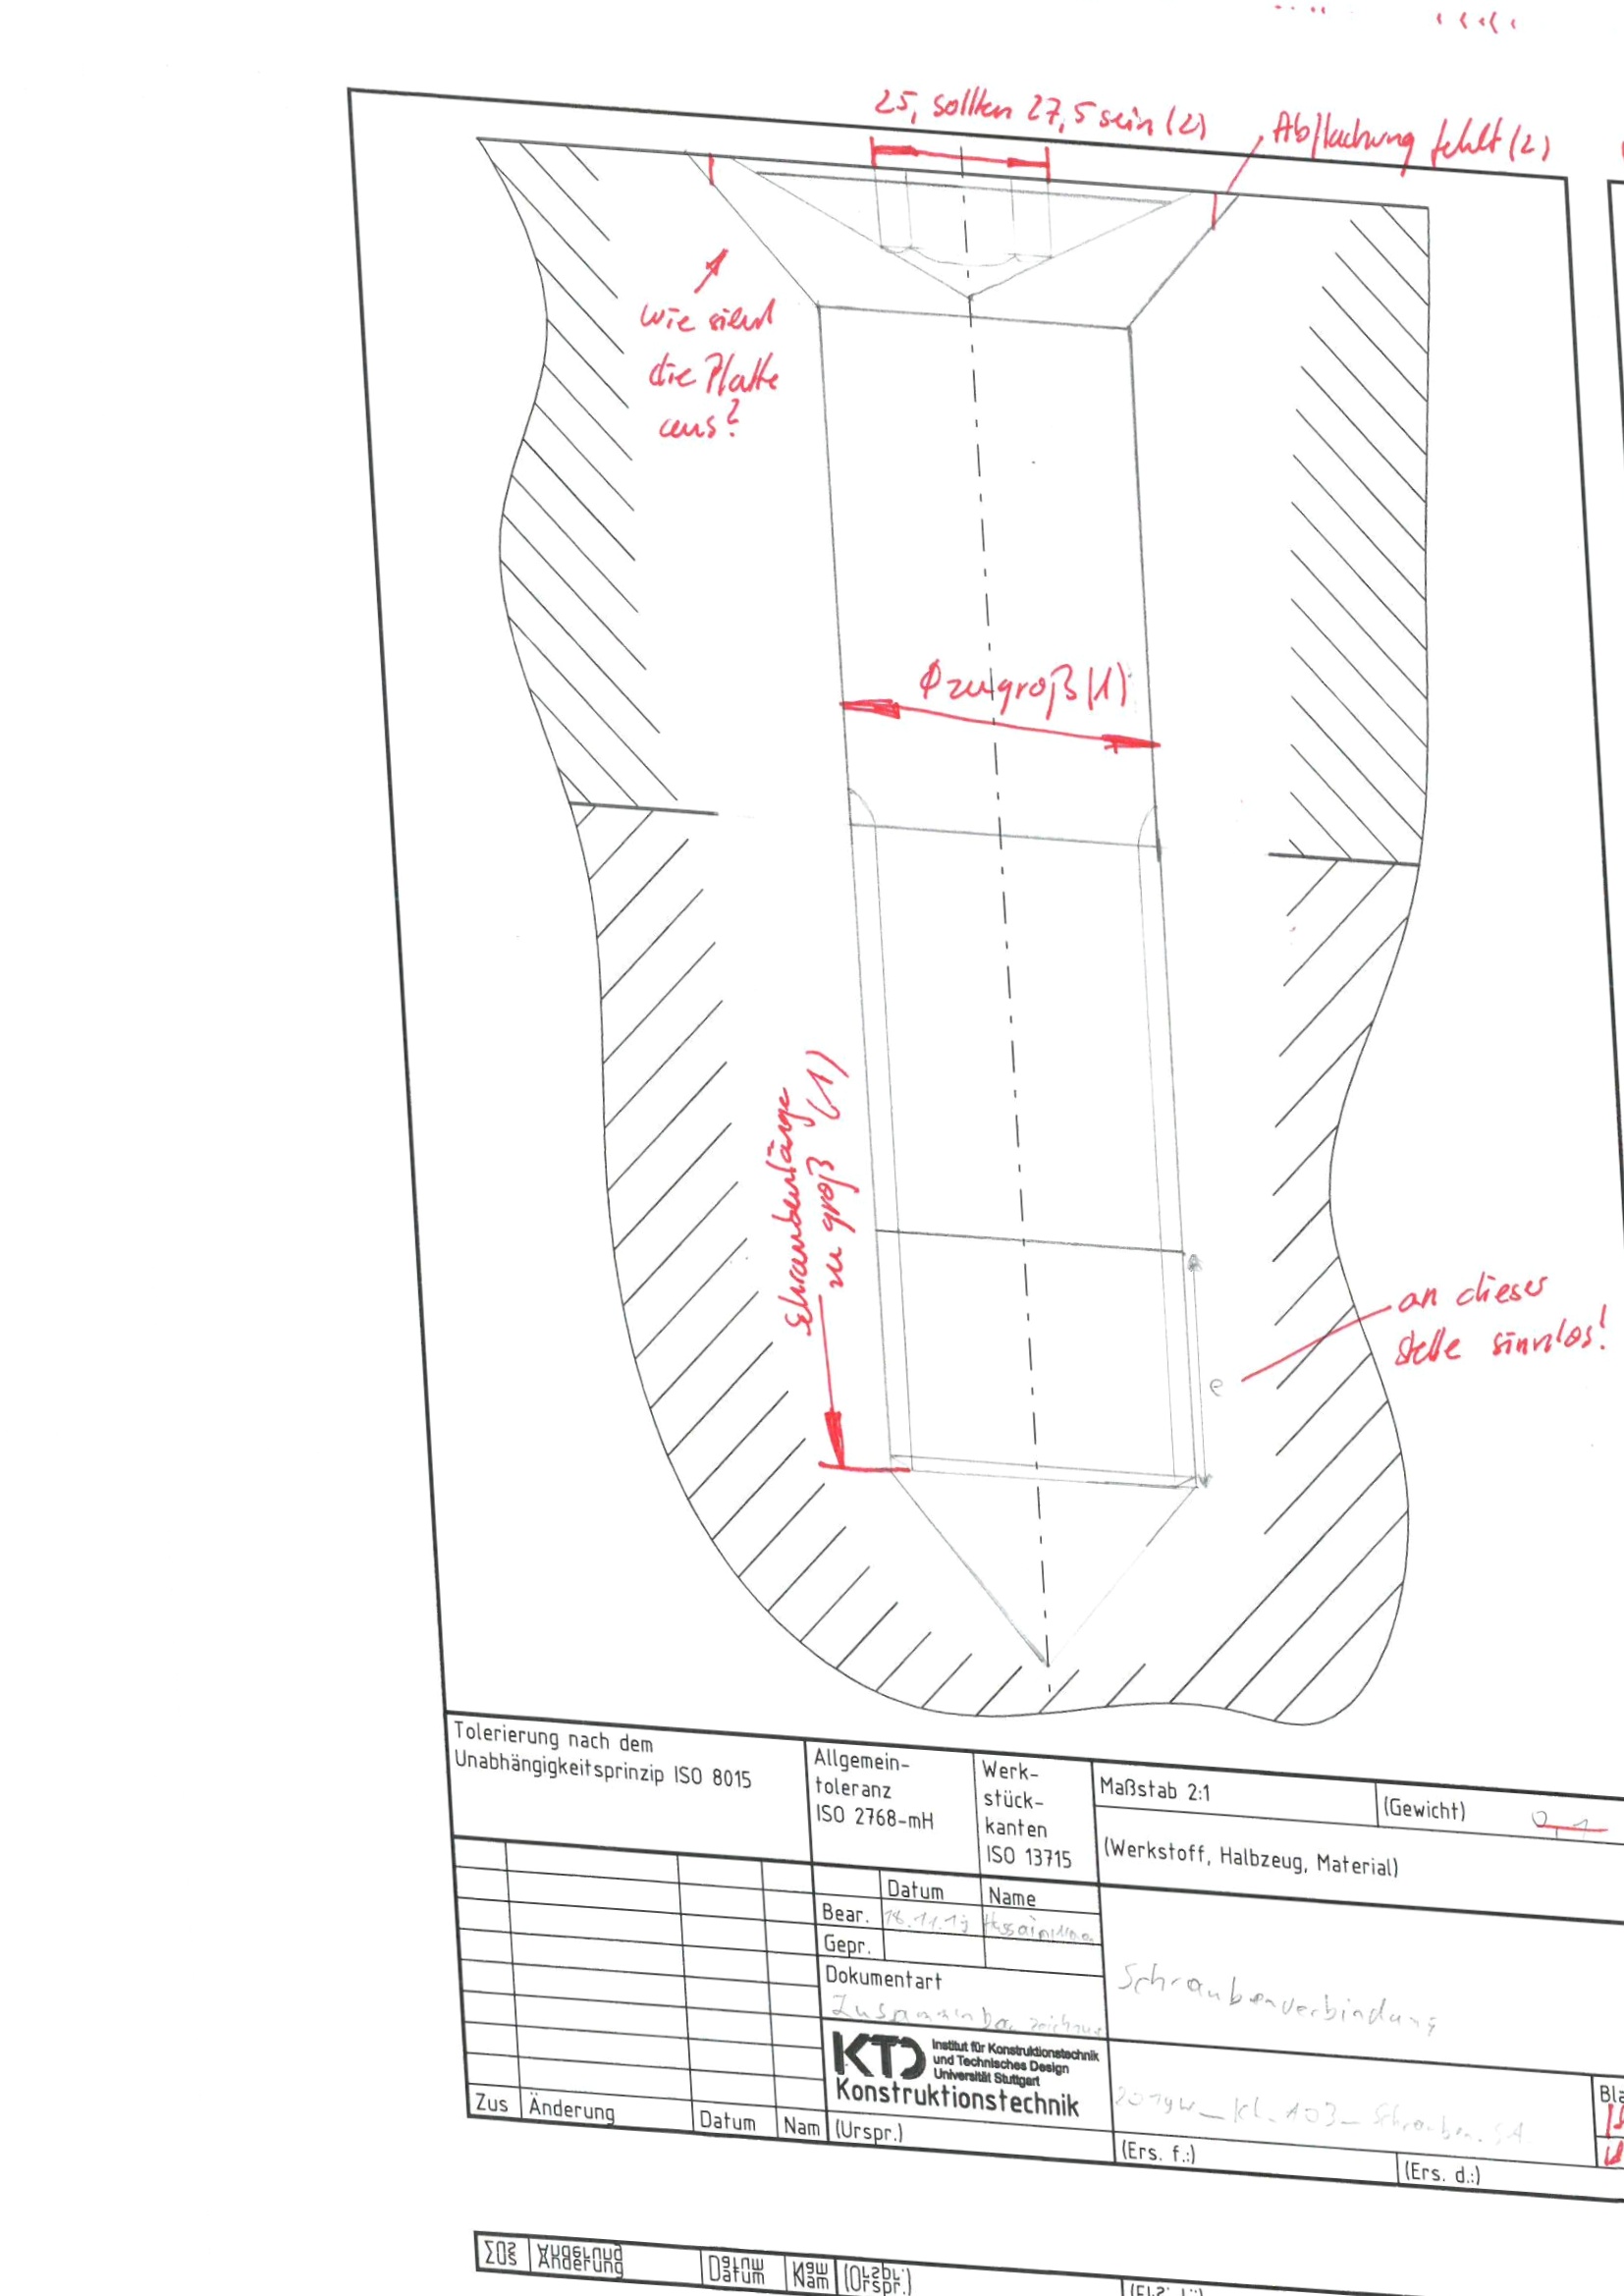 25, sollten 27,5 sein (2)
Abflachung fehlt (2)
wie sieht
die Platte
aus?
Ø zu groß (1)
Schraubenlänge
zu groß (1)
an dieser
Stelle sinnlos!
e
Tolerierung nach dem
Unabhängigkeitsprinzip ISO 8015
Allgemein-
toleranz
ISO 2768-mH
Werk-
stück-
kanten
ISO 13715
Maßstab 2:1
(Gewicht)
0,1
(Werkstoff, Halbzeug, Material)
Datum
Name
Bear.
Gepr.
Dokumentart
Schraubenverbindung
KTD
Institut für Konstruktionstechnik
und Technisches Design
Universität Stuttgart
Konstruktionstechnik
Zus
Änderung
Datum
Nam
(Urspr.)
(Ers. f.:)
(Ers. d.:)